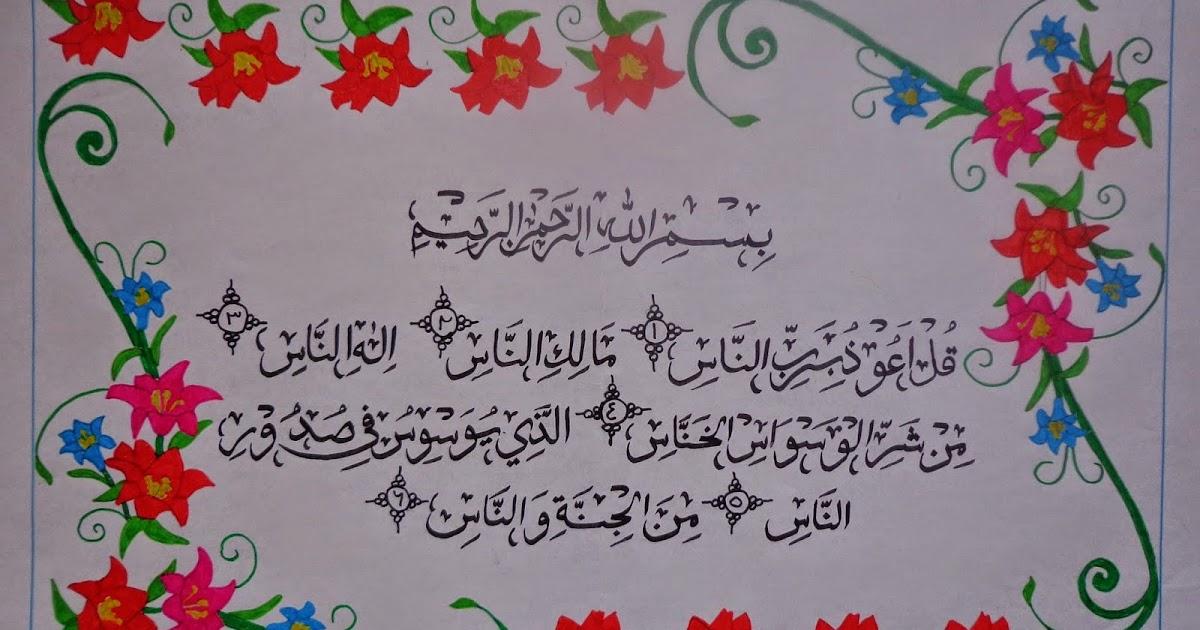 بِسْمِ اللهِ الرَّحْمٰنِ الرَّحِيْمِ
قُلْ اَعُوْذُ بِرَبِّ النَّاسِ ١ مَالِكِ النَّاسِ ٢ اِلٰهِ النَّاسِ ٣
مِنْ شَرِّ الْوَسْوَاسِ الْخَنَّاسِ ٤ الَّذِي يُوَسْوِسُ فِي صُدُوْرِ
النَّاسِ ٥ مِنَ الْجِنَّةِ وَالنَّاسِ ٦